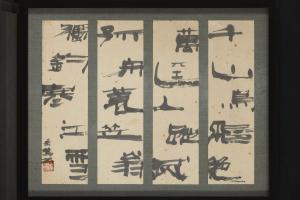 千山鳥飛絶
萬徑人蹤滅
孤舟蓑笠翁
獨釣寒江雪